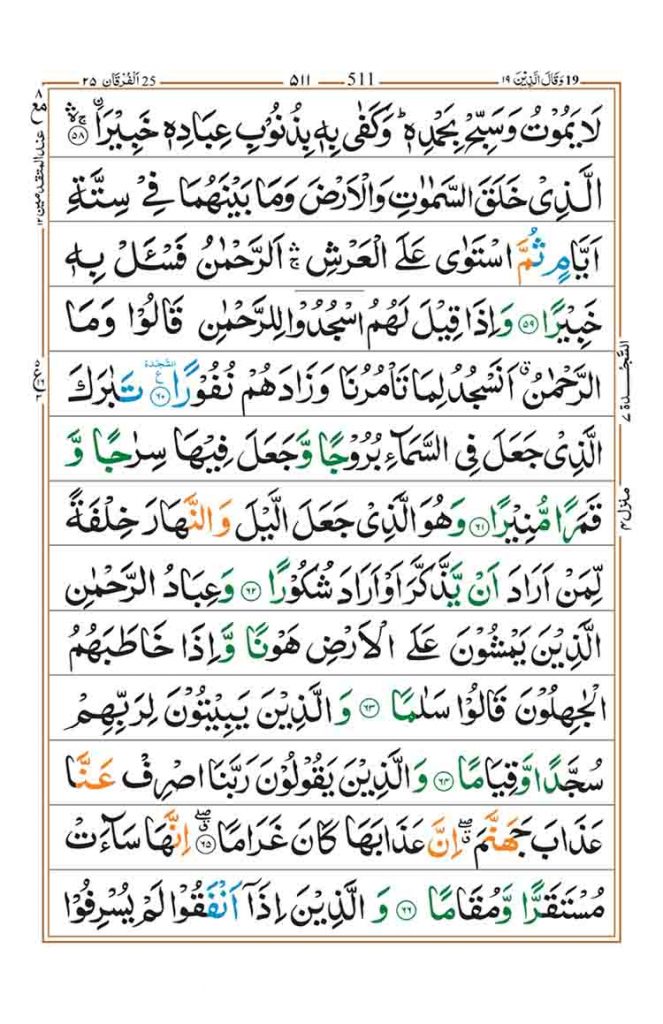 19 وَقَالَ الَّذِيْنَ ١٩ 511 ٥١١ 25 اَلْفُرْقَان ٢٥
لَا يَمُوْتُ وَسَبِّحْ بِحَمْدِهٖ ؕ وَكَفٰى بِهٖ بِذُنُوْبِ عِبَادِهٖ خَبِيْرَا ۛۚۙ ٥٨
الَّذِىْ خَلَقَ السَّمٰوٰتِ وَالْاَرْضَ وَمَا بَيْنَهُمَا فِىْ سِتَّةِ
اَيَّامٍ ثُمَّ اسْتَوٰى عَلَى الْعَرْشِ ۛۚ اَلرَّحْمٰنُ فَسْـَٔلْ بِهٖ
خَبِيْرًا ٥٩ وَاِذَا قِيْلَ لَهُمُ اسْجُدُوْا لِلرَّحْمٰنِ قَالُوْا وَمَا
الرَّحْمٰنُ ۗ اَنَسْجُدُ لِمَا تَاْمُرُنَا وَزَادَهُمْ نُفُوْرًا ٦٠ السَّجْدَة ع تَبٰرَكَ
الَّذِىْ جَعَلَ فِى السَّمَآءِ بُرُوْجًا وَّجَعَلَ فِيْهَا سِرٰجًا وَّ
قَمَرًا مُّنِيْرًا ٦١ وَهُوَ الَّذِىْ جَعَلَ الَّيْلَ وَالنَّهَارَ خِلْفَةً
لِّمَنْ اَرَادَ اَنْ يَّذَّكَّرَ اَوْ اَرَادَ شُكُوْرًا ٦٢ وَعِبَادُ الرَّحْمٰنِ
الَّذِيْنَ يَمْشُوْنَ عَلَى الْاَرْضِ هَوْنًا وَّاِذَا خَاطَبَهُمُ
الْجٰهِلُوْنَ قَالُوْا سَلٰمًا ٦٣ وَالَّذِيْنَ يَبِيْتُوْنَ لِرَبِّهِمْ
سُجَّدًا وَّقِيَامًا ٦٤ وَالَّذِيْنَ يَقُوْلُوْنَ رَبَّنَا اصْرِفْ عَنَّا
عَذَابَ جَهَنَّمَ ۖ اِنَّ عَذَابَهَا كَانَ غَرَامًا ۖ ٦٥ اِنَّهَا سَآءَتْ
مُسْتَقَرًّا وَّمُقَامًا ٦٦ وَالَّذِيْنَ اِذَاۤ اَنْفَقُوْا لَمْ يُسْرِفُوْا
السَّجْدَة ٧
منزل ٤
مع
عند المتقدمين ١٢